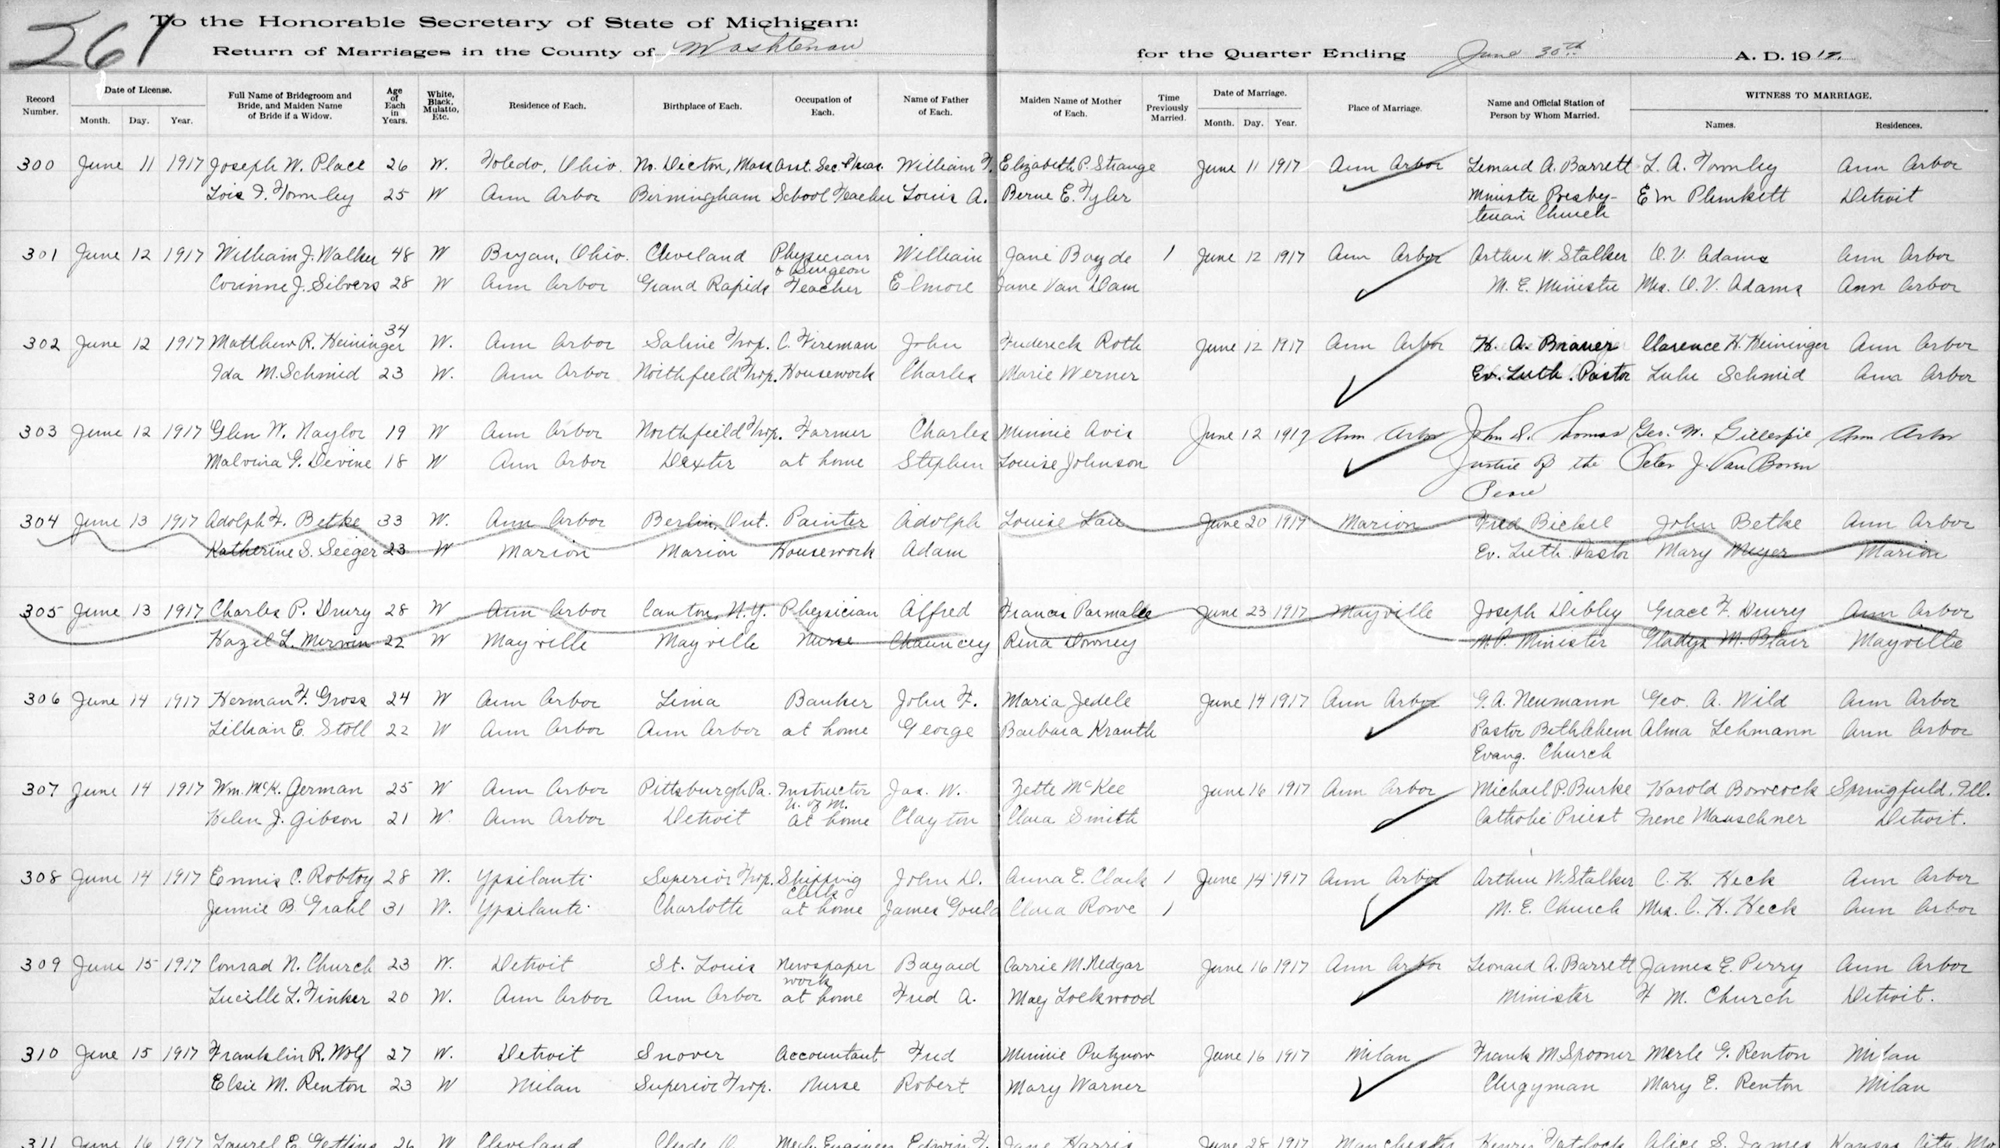 261
To the Honorable Secretary of State of Michigan:
Return of Marriages in the County of Washtenaw for the Quarter Ending June 30th A. D. 1917.
Record Number. Date of License. Month. Day. Year. Full Name of Bridegroom and Bride, and Maiden Name of Bride if a Widow. Age of Each in Years. White, Black, Mulatto, Etc. Residence of Each. Birthplace of Each. Occupation of Each. Name of Father of Each. Maiden Name of Mother of Each. Time Previously Married. Date of Marriage. Month. Day. Year. Place of Marriage. Name and Official Station of Person by Whom Married. WITNESS TO MARRIAGE. Names. Residences.
300 June 11 1917 Joseph W. Place 26 W. Toledo, Ohio. No. Mass Asst. Sec. Treas. William F. Elizabeth P. Strange June 11 1917 Ann Arbor Leonard A. Barrett L. A. Ann Arbor
Lois F. 25 W Ann Arbor Birmingham School Teacher Louis A. Berne E. Tyler Ministr Presby- E M Plunkett Detroit
terian Church
301 June 12 1917 William J. Walker 48 W Bryan, Ohio. Cleveland Physician William Jane Boyde 1 June 12 1917 Ann Arbor Arthur W. Stalker O. V. Adams Ann Arbor
& Surgeon
Corinne J. Silvers 28 W Ann Arbor Grand Rapids Teacher Elmore Jane Van Dam M. E. Ministr Mrs. O. V. Adams Ann Arbor
302 June 12 1917 Matthew R. Heininger 34 W. Ann Arbor Saline Twp. C. Fireman John Frederick Roth June 12 1917 Ann Arbor H. A. Brauer Clarence H. Heininger Ann Arbor
Ida M. Schmid 23 W. Ann Arbor Northfield Twp. Housework Charles Marie Werner Ev. Luth. Pastor Lulu Schmid Ann Arbor
303 June 12 1917 Glen W. Naylor 19 W Ann Arbor Northfield Twp. Farmer Charles Minnie Avis June 12 1917 Ann Arbor John D. Thomas Geo. W. Gillespie Ann Arbor
Malvina G. Devine 18 W Ann Arbor Dexter at home Stephen Louise Johnson Justice of the Peter J. Van Boven
Peace
304 June 13 1917 Adolph F. Betke 33 W. Ann Arbor Berlin, Ont. Painter Adolph Louise Lau June 20 1917 Marion Fred Bickel John Betke Ann Arbor
Katherine S. Seeger 23 W Marion Marion Housework Adam Ev. Luth. Pastor Mary Meyer Marion
305 June 13 1917 Charles P. Drury 28 W Ann Arbor Canton, N.Y. Physician Alfred Frances Parmalee June 23 1917 Mayville Joseph Dibley Grace F. Drury Ann Arbor
Hazel L. Merwin 22 W Mayville Mayville Nurse Chauncey Rena Downey M.P. Minister Gladys M. Blair Mayville
306 June 14 1917 Herman F. Gross 24 W Ann Arbor Lima Banker John F. Maria Jedele June 14 1917 Ann Arbor G. A. Neumann Geo. A. Wild Ann Arbor
Lillian E. Stoll 22 W Ann Arbor Ann Arbor at home George Barbara Krauth Pastor Bethlehem Alma Lehmann Ann Arbor
Evang. Church
307 June 14 1917 Wm. McK. German 25 W Ann Arbor Pittsburgh Pa. Instructor Jas. W. Zette McKee June 16 1917 Ann Arbor Michael P. Burke Harold Bowcock Springfield, Ill.
U. of M.
Helen J. Gibson 21 W. Ann Arbor Detroit at home Clayton Clara Smith Catholic Priest Irene Mauschner Detroit.
308 June 14 1917 Ennis C. Robtoy 28 W. Ypsilanti Superior Twp. Shipping John D. Anna E. Clark 1 June 14 1917 Ann Arbor Arthur W. Stalker C. H. Heck Ann Arbor
Clerk
Jennie B. Grahl 31 W. Ypsilanti Charlotte at home James Gould Clara Rowe 1 M. E. Church Mrs. C. H. Heck Ann Arbor
309 June 15 1917 Conrad N. Church 23 W. Detroit St. Louis Newspaper Bayard Carrie M. Nedgar June 16 1917 Ann Arbor Leonard A. Barrett James E. Perry Ann Arbor
work
Lucille L. Tinker 20 W. Ann Arbor Ann Arbor at home Fred A. May Lockwood Minister F M. Church Detroit.
310 June 15 1917 Franklin R. Wolf 27 W. Detroit Snover Accountant Fred Minnie Putznow June 16 1917 Milan Frank M. Spooner Merle G. Renton Milan
Elsie M. Renton 23 W Milan Superior Twp. Nurse Robert Mary Warner Clergyman Mary E. Renton Milan
311 June 16 1917 Laurel E. Gettins 26 W Cleveland Clyde O. Mech. Engineer Edwin F. Jane Harris June 28 1917 Manchester Henry Tatlock Alice S. James Kansas City, Mo